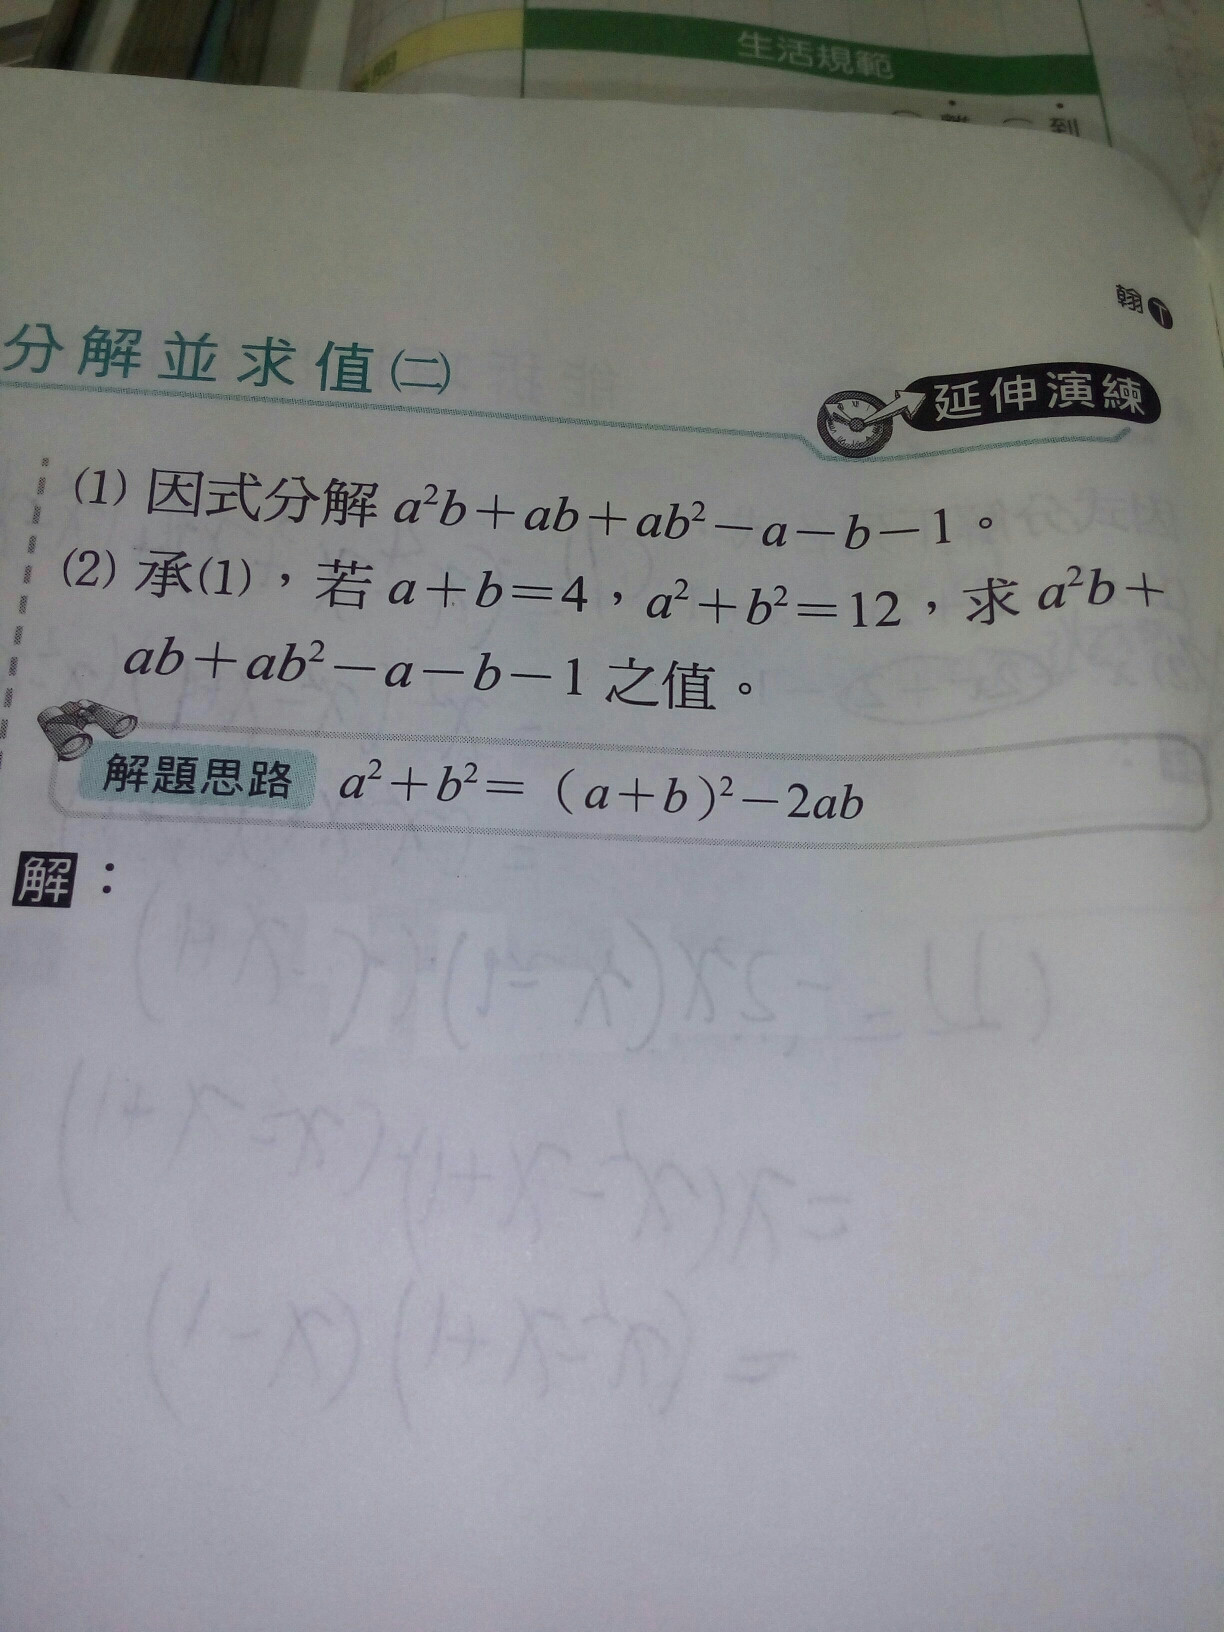 生活規範
到
翰
分解並求值(二)
延伸演練
(1) 因式分解 a²b+ab+ab²-a-b-1。
(2) 承(1)，若 a+b=4，a²+b²=12，求 a²b+
ab+ab²-a-b-1 之值。
解題思路 a²+b²=（a+b）²-2ab
解：